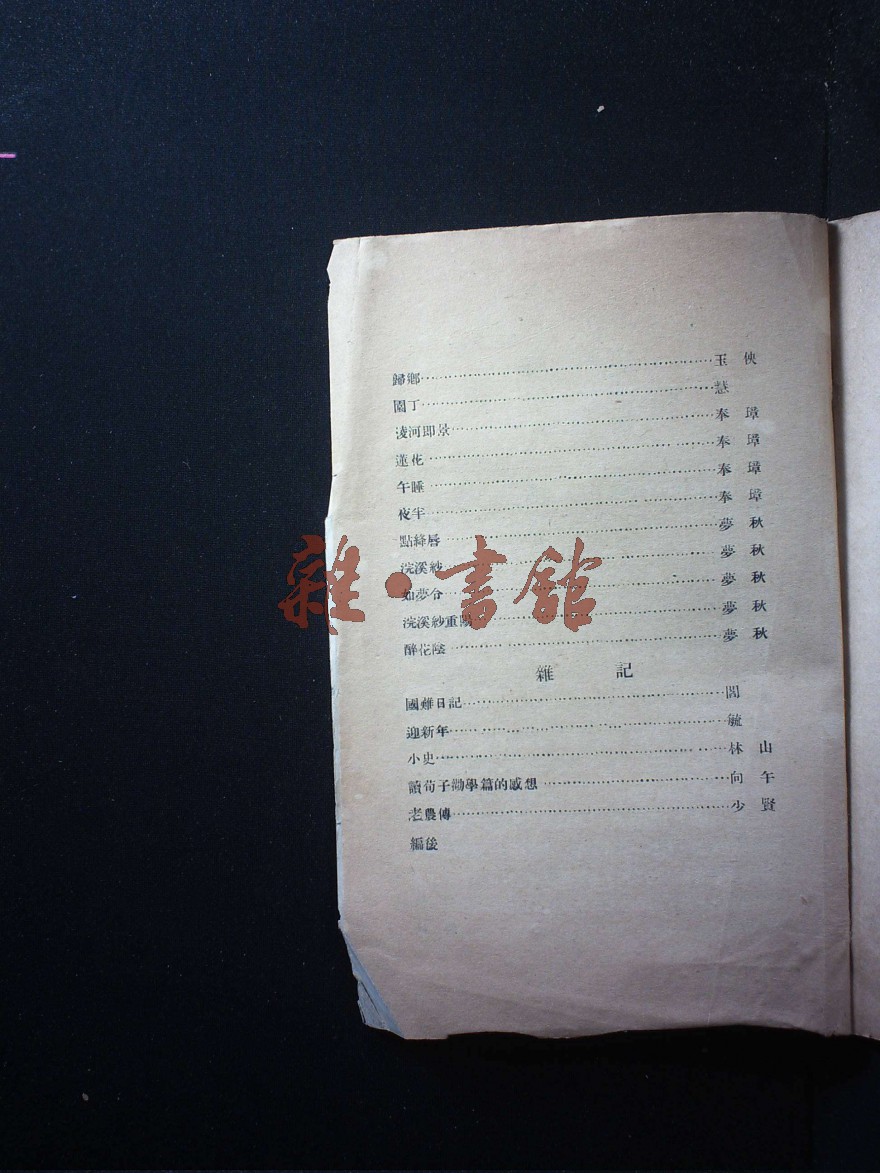 歸鄉……玉俠
園丁……慧
淩河即景……奉璋
蓮花……奉璋
午睡……奉璋
夜半……奉璋
點絳唇……夢秋
浣溪紗……夢秋
如夢令……夢秋
浣溪紗重陽……夢秋
醉花陰……夢秋
雜記
國難日記……閻
迎新年……毓
小史……林山
讀荀子勸學篇的感想……向午
老農傳……少賢
編後
雜·書館